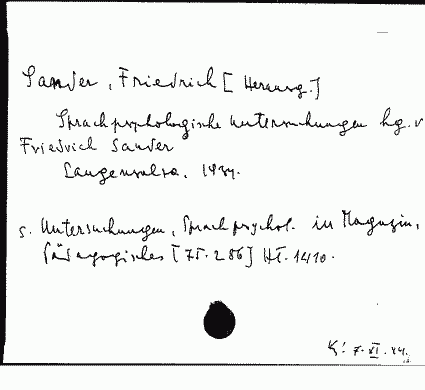 Sander, Friedrich [Herausg.]
Sprachpsychologische Untersuchungen hg. v
Friedrich Sander
Langensalza. 1934.
s. Untersuchungen, Sprachpsychol. in Magazin,
Pädagogisches [75. 286] Ht. 1410.
K: 7. XI. 44.